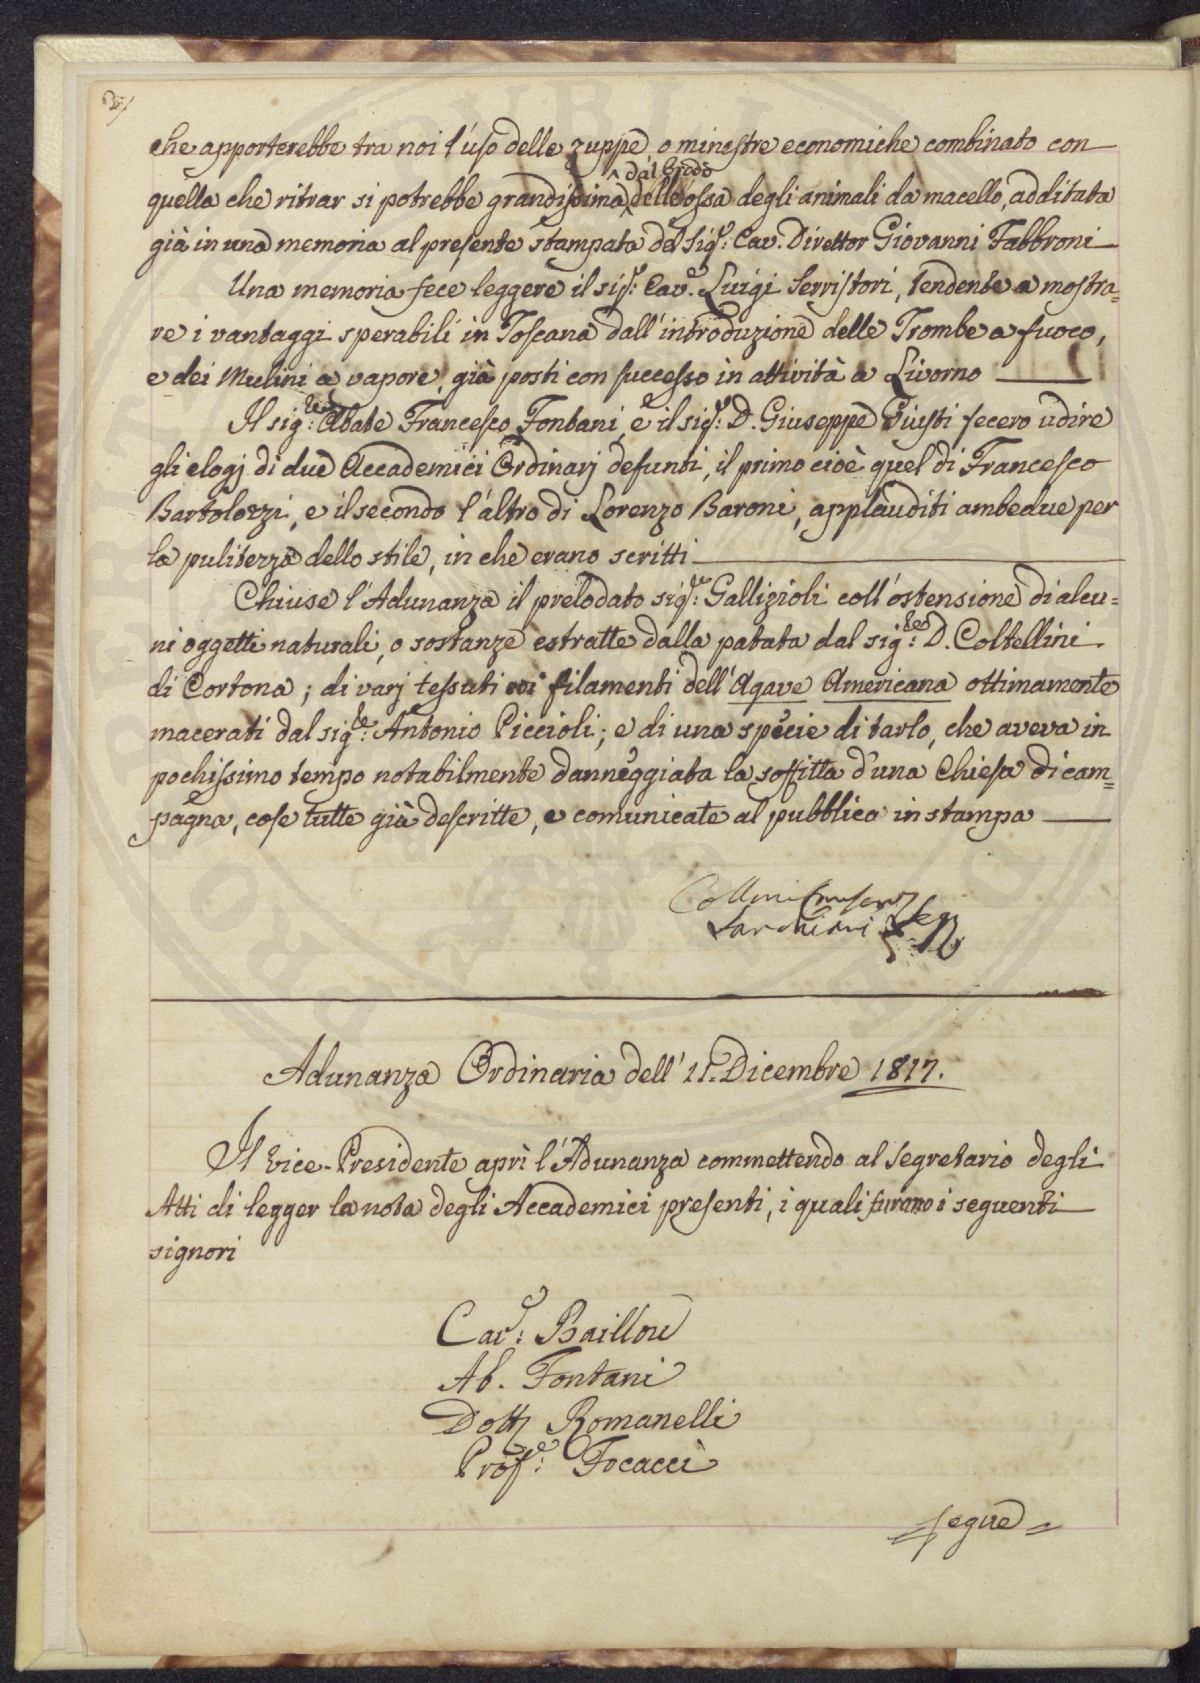 che apporterebbe tra noi l'uso delle zuppe o minestre economiche combinato con
dal brodo
quella che ritrar si potrebbe grandissima delle ossa degli animali da macello, additata
già in una memoria al presente stampata del Sig.e Cav. Direttor Giovanni Fabbroni
Una memoria fece leggere il sig.e Cav.e Luigi Serristori, tendente a mostra=
re i vantaggi sperabili in Toscana dall'introduzione delle Trombe a fuoco,
e dei Mulini a vapore, già posti con successo in attività a Livorno
Il sig.re Abate Francesco Fontani, e il sig.e D. Giuseppe Giusti fecero udire
gli elogj di due Accademici Ordinarj defunti, il primo cioè quel di Francesco
Bartolozzi, e il secondo l'altro di Lorenzo Baroni, applauditi ambedue per
la pulitezza dello stile, in che erano scritti
Chiuse l'Adunanza il prelodato sig.re Gallizioli coll'ostensione di alcu=
ni oggetti naturali, o sostanze estratte dalla patata dal sig.re D. Coltellini
di Cortona; di varj tessuti coi filamenti dell'Agave Americana ottimamente
macerati dal sig.re Antonio Piccioli; e di una specie di tarlo, che aveva in
pochissimo tempo notabilmente danneggiata la soffitta d'una Chiesa di cam=
pagna, cose tutte già descritte, e comunicate al pubblico in stampa
Sarchiani
Adunanza Ordinaria dell'11. Dicembre 1817.
Il Vice-Presidente aprì l'Adunanza commettendo al Segretario degli
Atti di legger la nota degli Accademici presenti, i quali furano i seguenti
signori
Cav.e: Baillou
Ab. Fontani
Dott. Romanelli
Prof.e: Focacci
=segue=